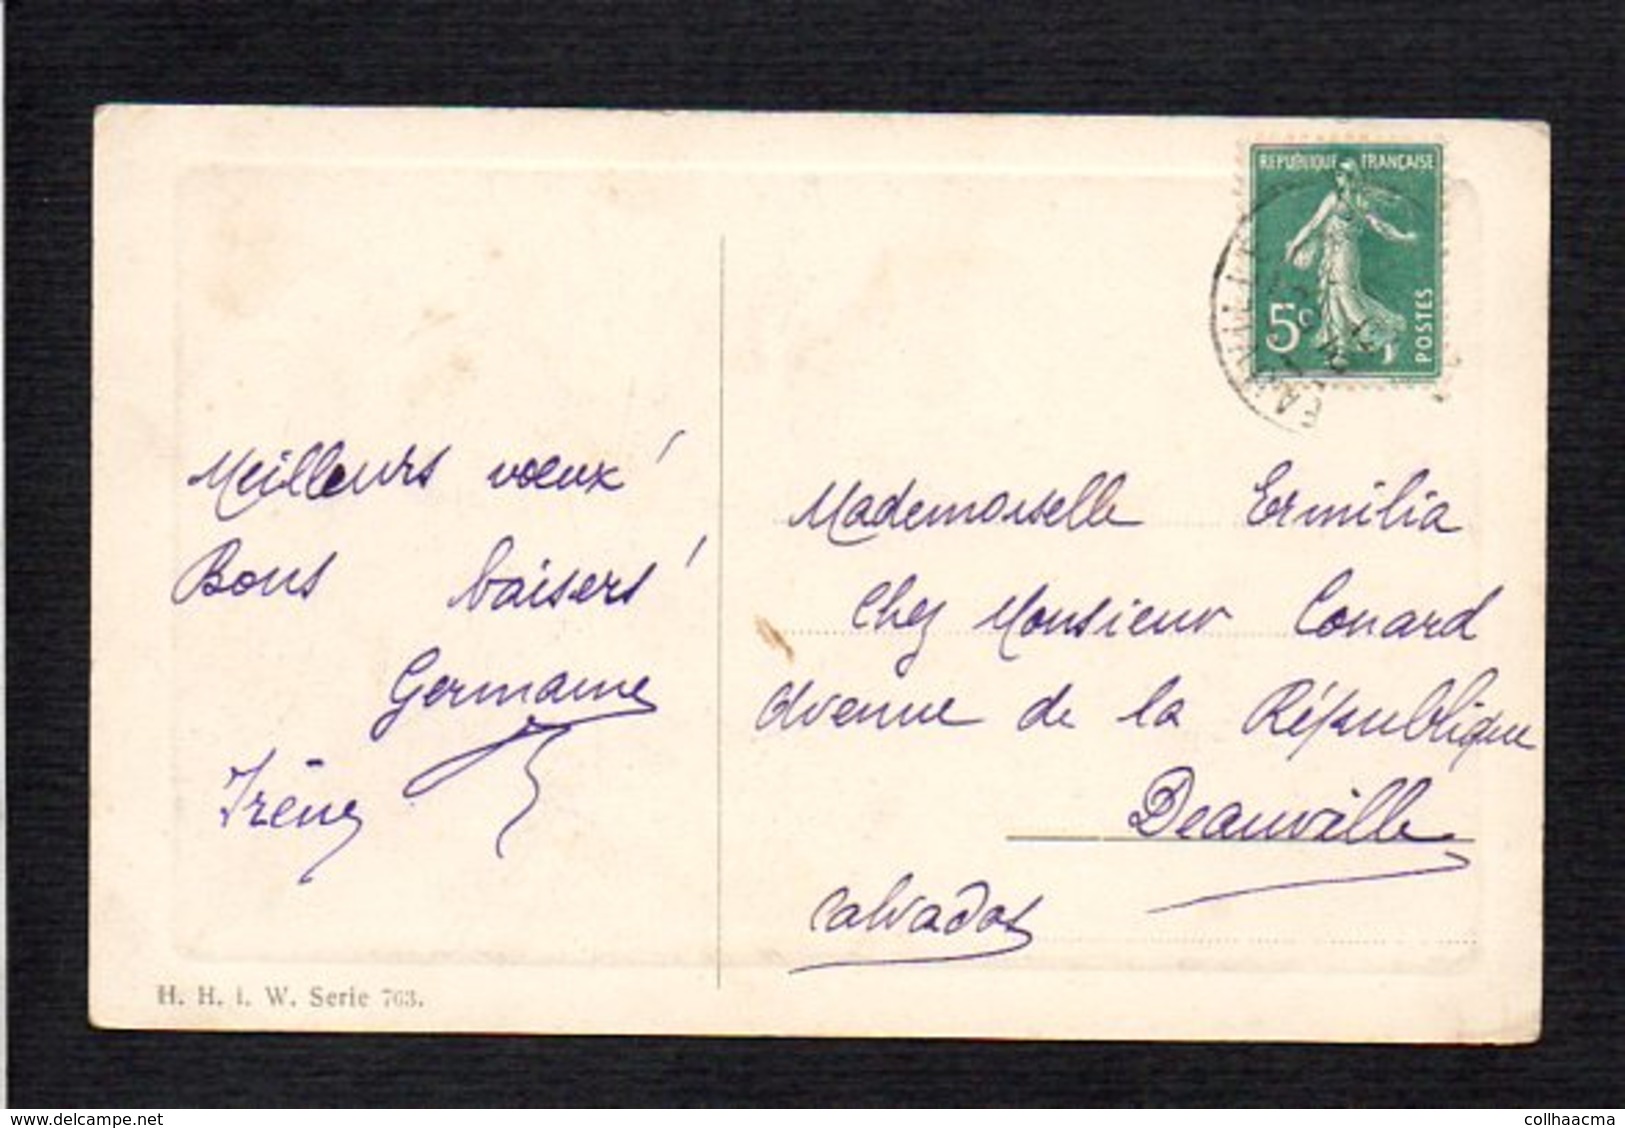 REPUBLIQUE FRANÇAISE
5c
POSTES
Meilleurs vœux !
Bons baisers !
Germaine
Irène
Mademoiselle Ermilia
Chez Monsieur Conard
Avenue de la République
Deauville
Calvados
H. H. i. W. Serie 763.
delcampe.net
collhaacma